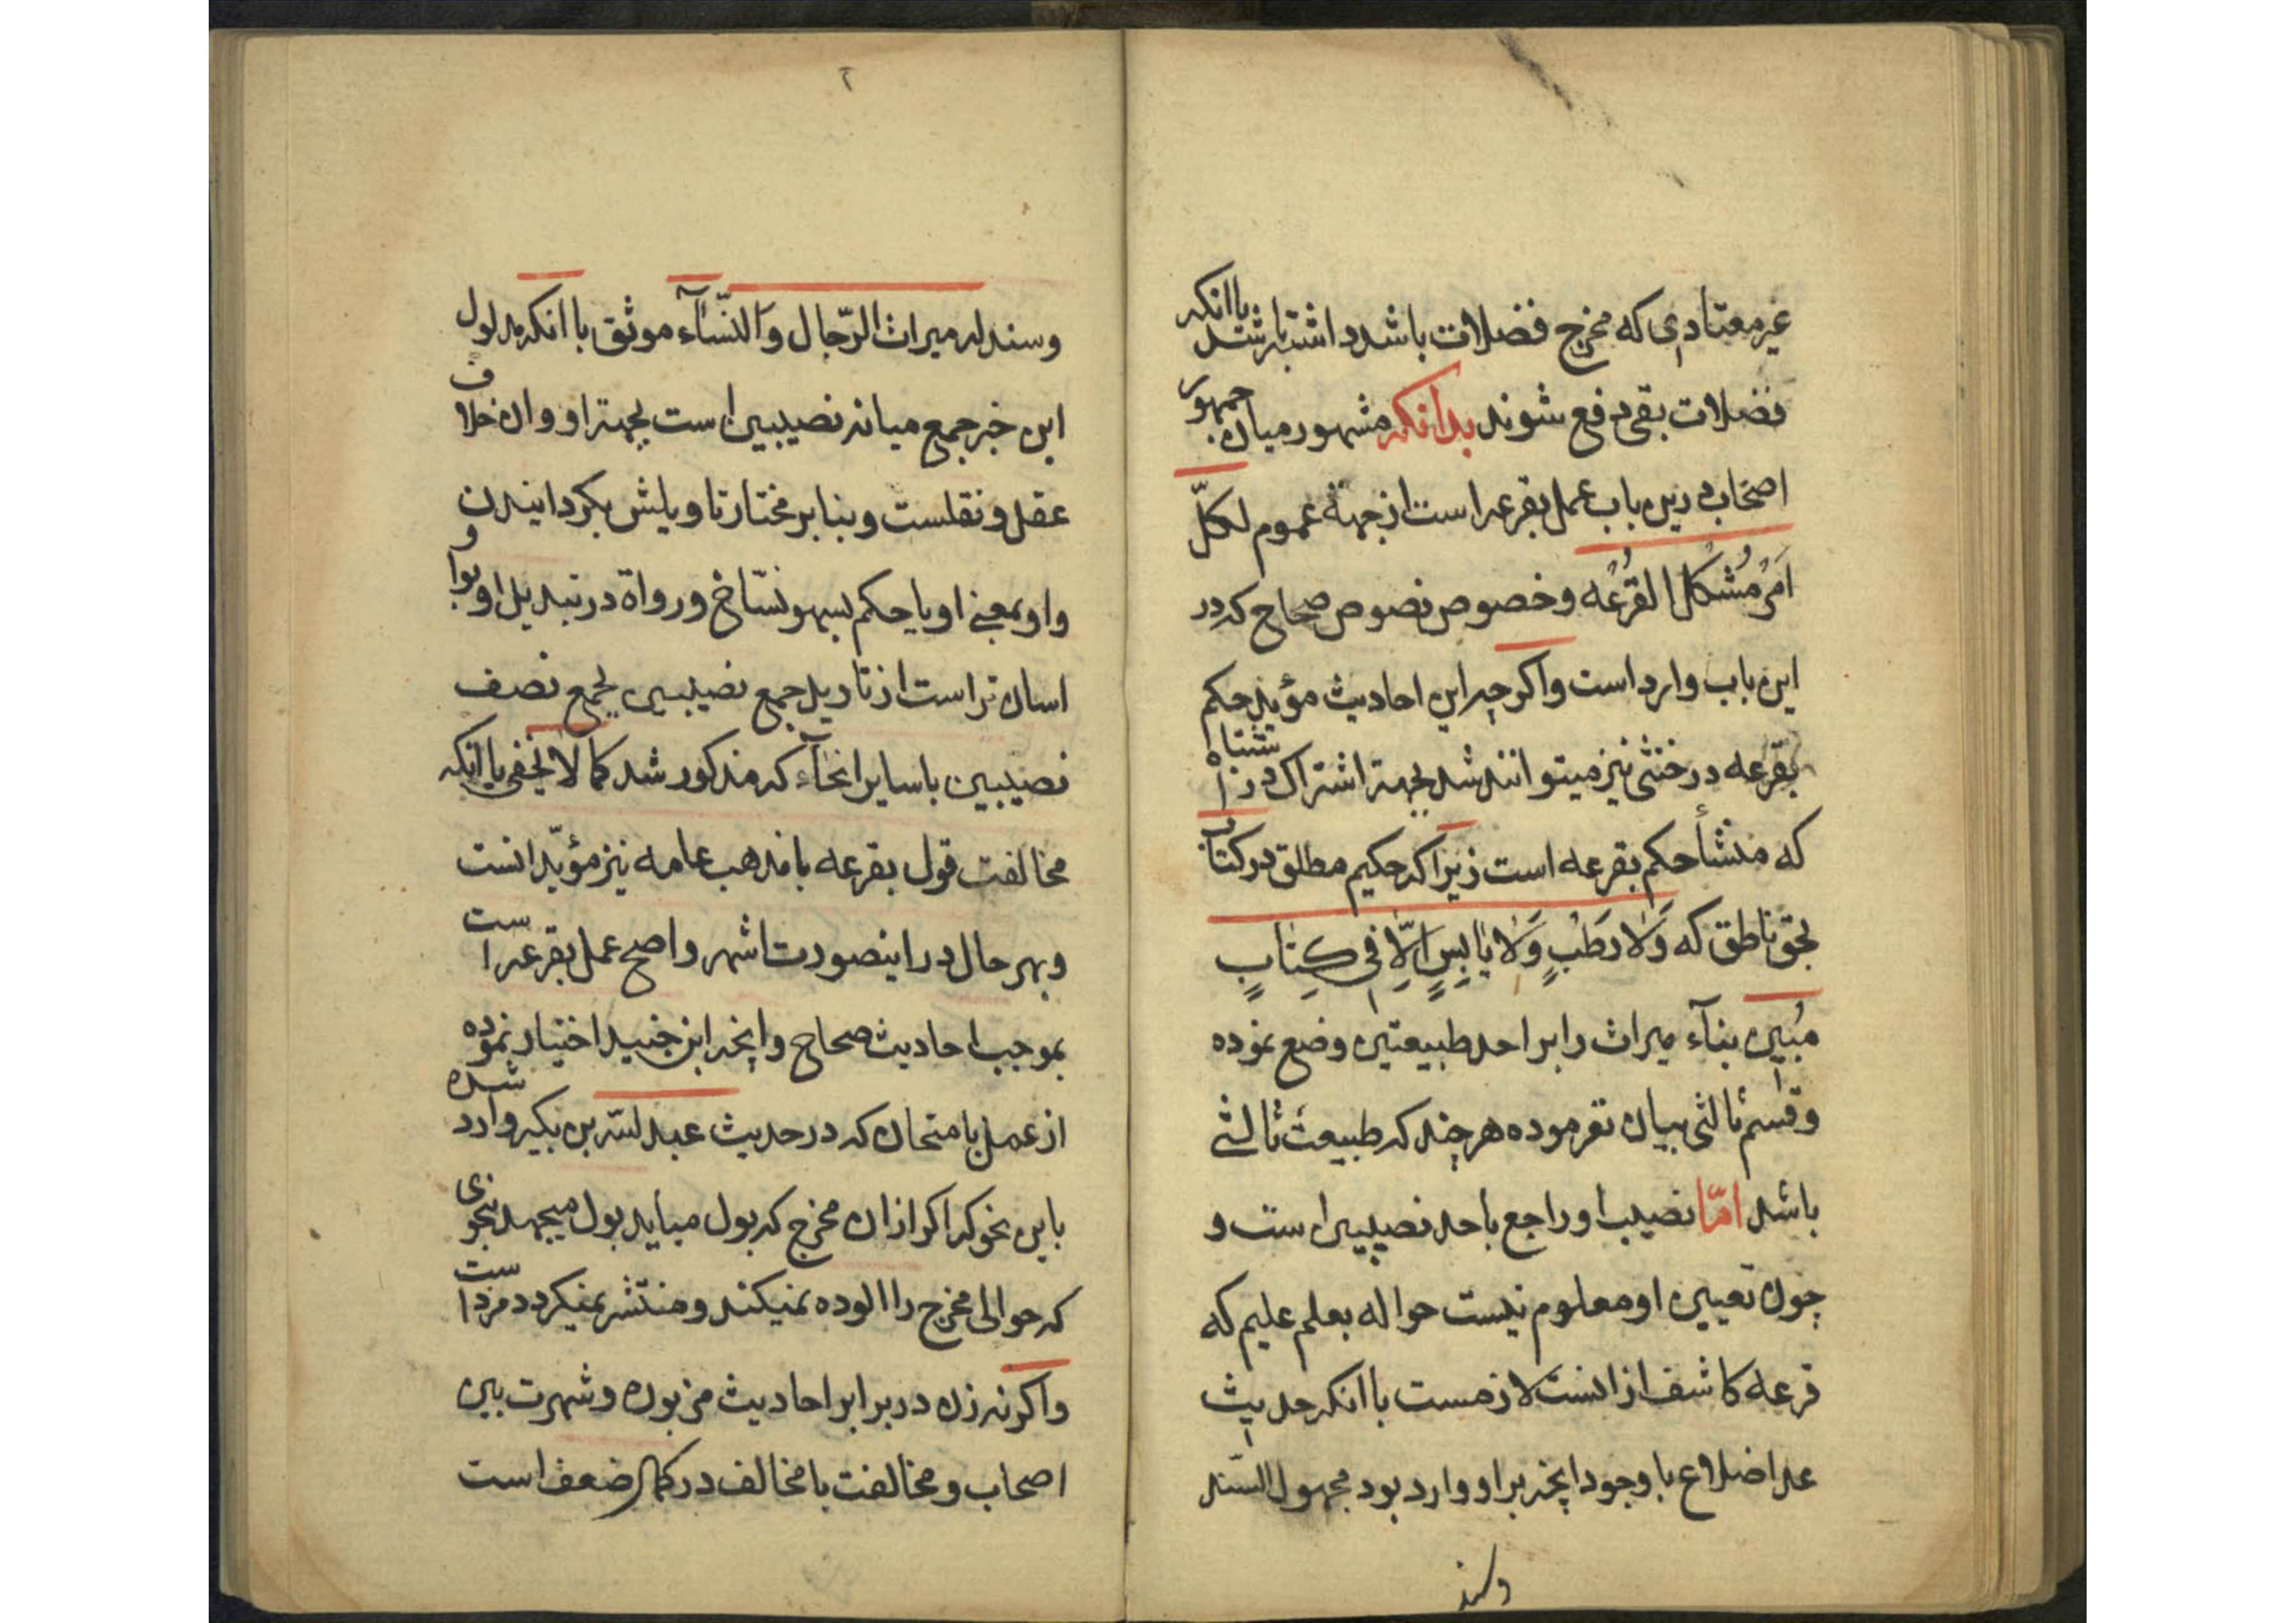 غیر معتادی که مخرج فضلات باشد داشته باشد یا انکه
فضلات بقی دفع شوند بدانکه مشهور میان جمهور
اصحاب درین باب عمل بقرعه است از جهة عموم لکلّ
اَمْرٍ مُشْکل القُرْعُه و خصوص نصوص صحاح که در
این باب وارد است واکرچه این احادیث مؤید حکم
بقرعه در خنثی نیز میتوانند شد بجهة اشتراک در اشتباه
که منشأ حکم بقرعه است زیرا که حکیم مطلق در کتاب
بحق ناطق که وَلا رَطْبٍ وَلا یابِسٍ اِلّا فی کِتابٍ
مُبین بناء میراث را بر احد طبیعتین وضع نموده
و قسم ثالثی بیان نفرموده هر چند که طبیعت ثالثی
باشد امّا نصیب او راجع باحد نصیبین است و
چون تعیین او معلوم نیست حواله بعلم علیم که
قرعه کاشف از انست لازمست با انکه حدیث
عد اضلاع با وجود انچه بر او وارد بود مجهول السّند
وسند
۲
وسند له میراث الرّجال وَالنّسآء موثق با انکه مدلول
این خبر جمع میانه نصیبین است بجهة او و ان خلاف
عقل و نقلست و بنابر مختار تاویلش بکردانیدن
واو بمعنی او یا حکم بسهو نسّاخ و رواة در تبدیل او بواو
اسان تر است از تاویل جمع نصیبین بجمع نصف
نصیبین با سایر انحآء که مذکور شد کما لا یخفی با انکه
مخالفت قول بقرعه با مذهب عامه نیز مؤیّد انست
و بهر حال در اینصورت اشهر و اصح عمل بقرعه است
بموجب احادیث صحاح و انچه ابن جنید اختیار نموده
از عمل بامتحان که در حدیث عبدالله بن بکیر وارد شده
باین نحو که اکر از ان مخرج که بول میاید بول میجهد بنحوی
که حوالی مخرج را الوده نمیکند و منتشر نمیکردد مرد است
واکرنه زن در برابر احادیث مزبوره و شهرت بین
اصحاب و مخالفت با مخالف در کمال ضعف است